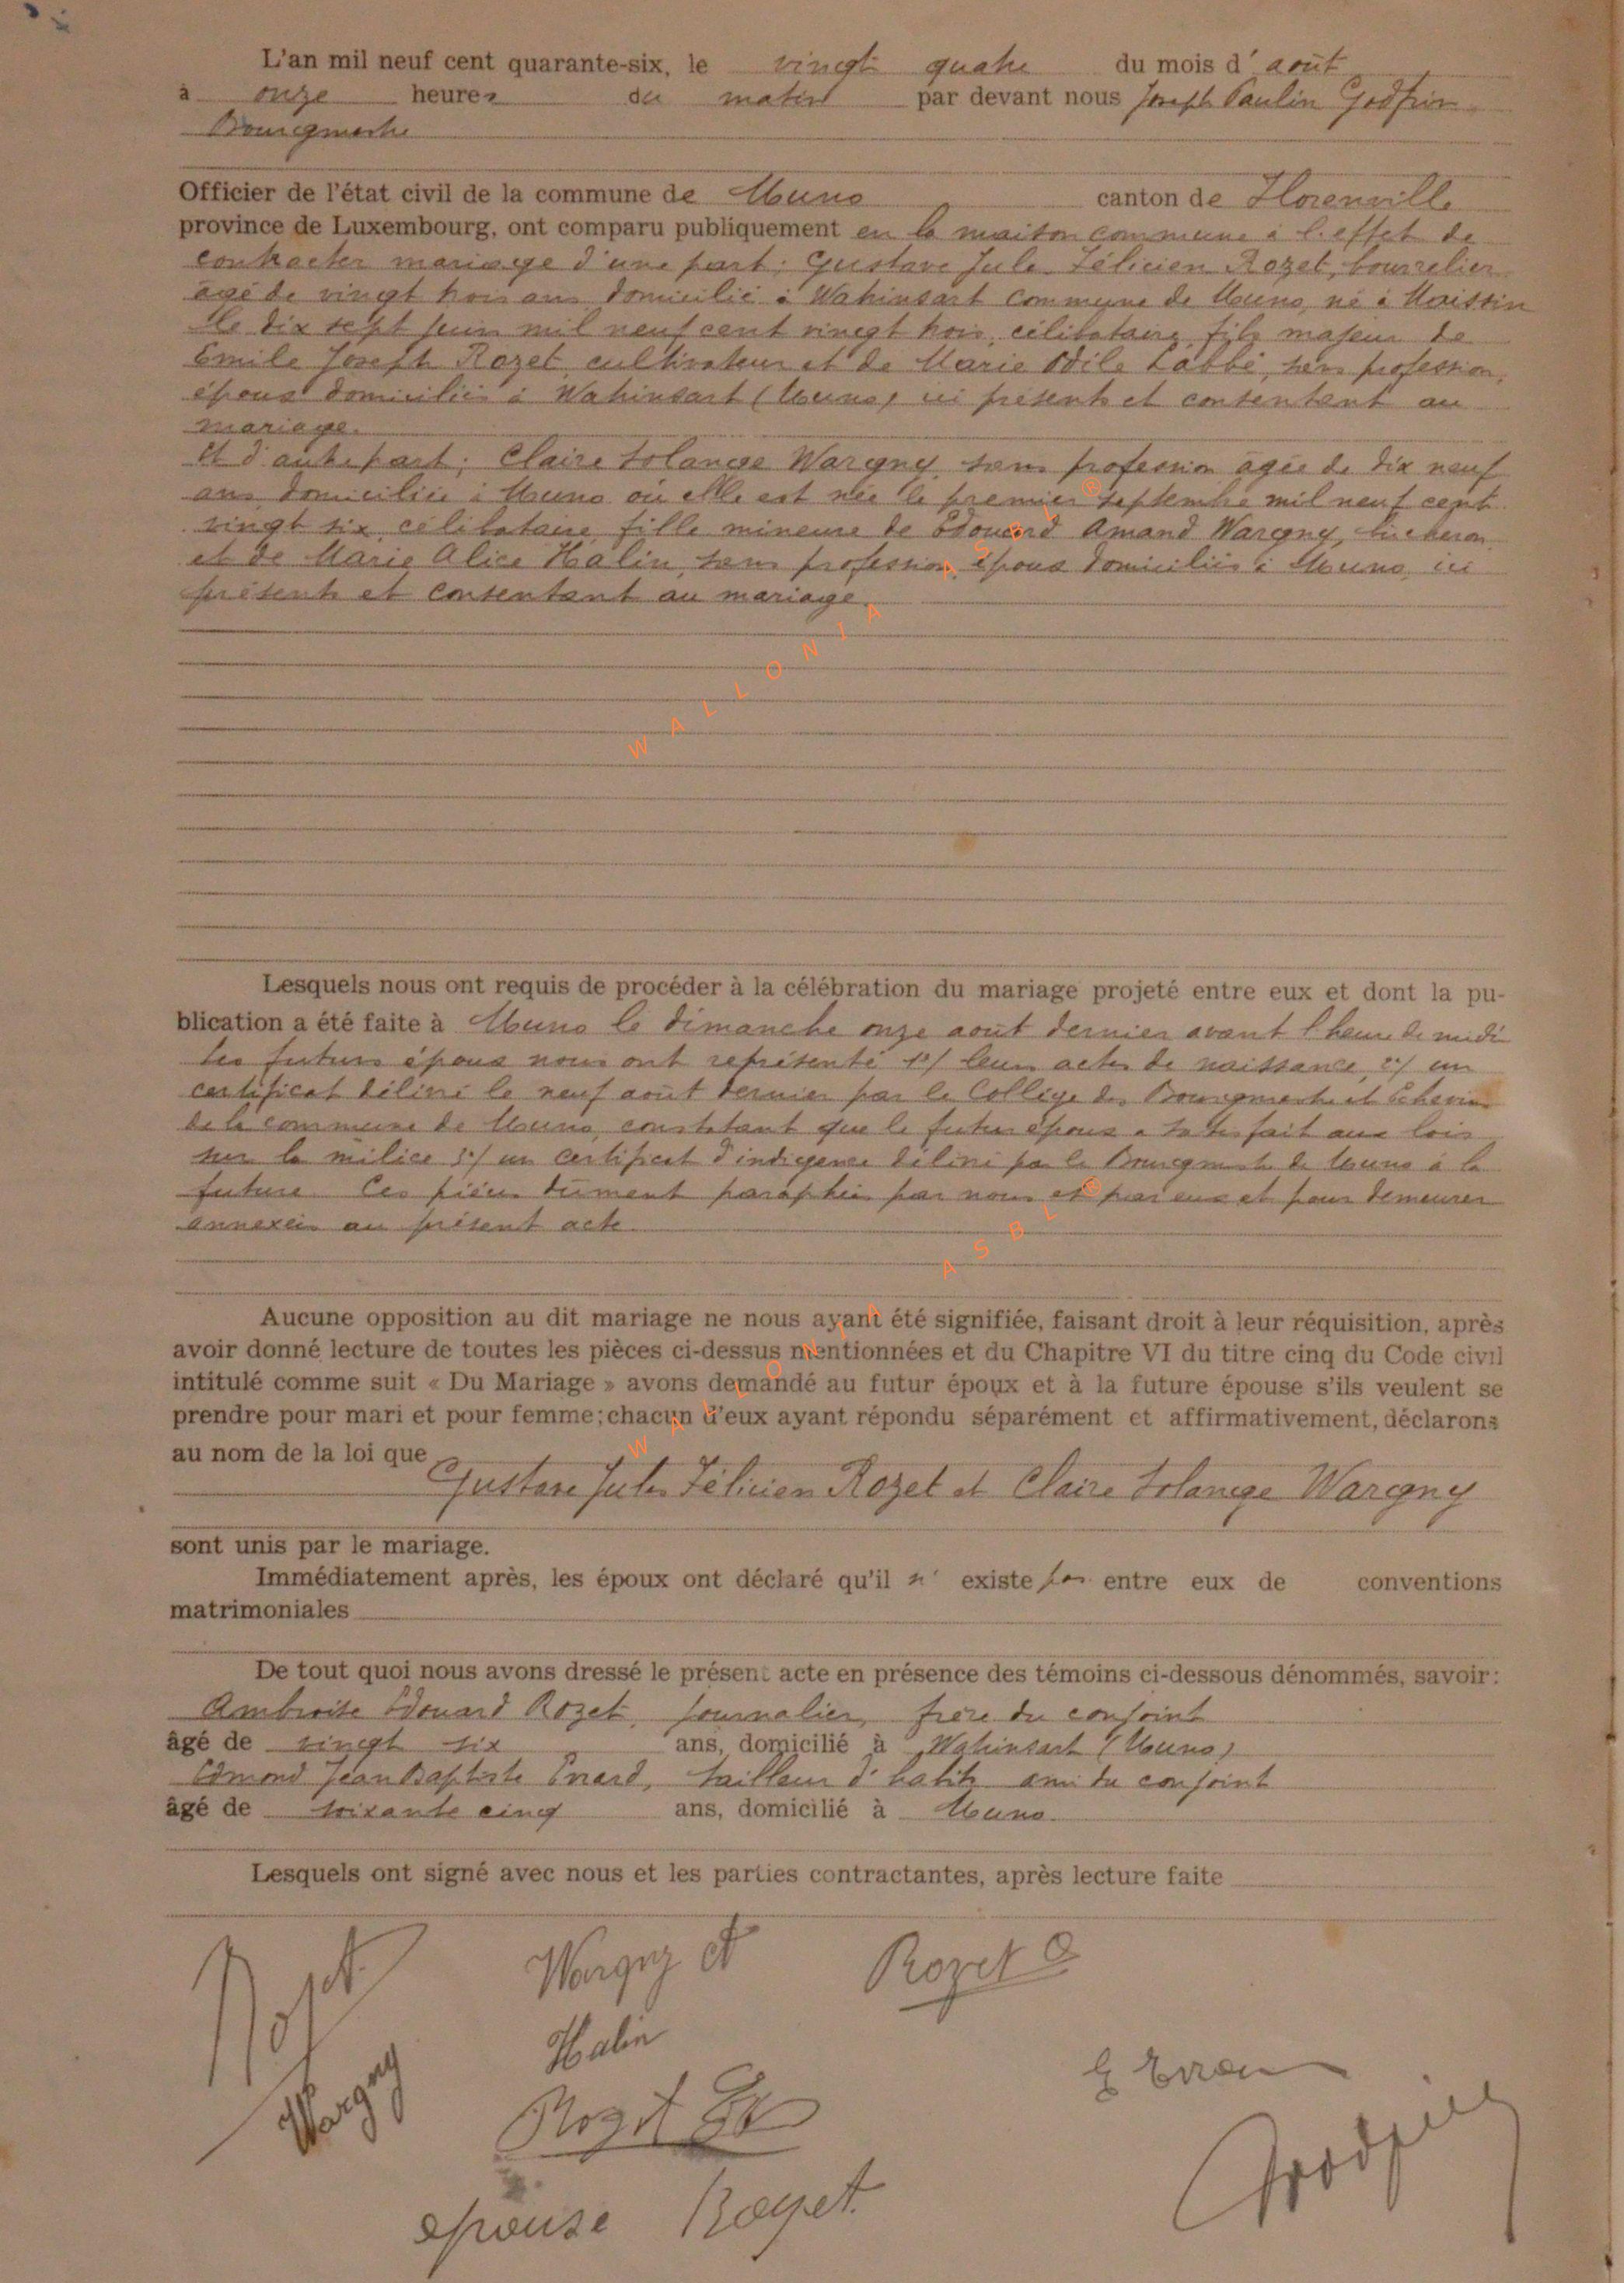 L'an mil neuf cent quarante-six, le vingt quatre du mois d' août
à onze heures du matin par devant nous Joseph Paulin Godfrin
Bourgmestre
Officier de l'état civil de la commune de Muno canton de Florenville
province de Luxembourg, ont comparu publiquement en la maison commune à l'effet de
contracter mariage d'une part: Gustave Jules Félicien Rozet, bourrelier
âgé de vingt trois ans domicilié à Wahinsart commune de Muno, né à Maissin
le dix sept juin mil neuf cent vingt trois, célibataire, fils majeur de
Emile Joseph Rozet cultivateur et de Marie Odile Labbé, sans profession,
époux domiciliés à Wahinsart (Muno) ici présents et consentant au
mariage.
Et d'autre part: Claire Solange Wargny sans profession agée de dix neuf
ans domiciliée à Muno où elle est née le premier septembre mil neuf cent
vingt six célibataire, fille mineure de Edouard Amand Wargny, bucheron
et de Marie Alice Halin, sans profession, époux domiciliés à Muno, ici
présents et consentant au mariage.
WALLONIA ASBL ®
Lesquels nous ont requis de procéder à la célébration du mariage projeté entre eux et dont la pu-
blication a été faite à Muno le dimanche onze août dernier avant l'heure de midi
Les futurs époux nous ont représenté 1°/ leurs actes de naissance, 2°/ un
certificat délivré le neuf août dernier par le Collège des Bourgmestre et Echevins
de la commune de Muno, constatant que le futur époux a satisfait aux lois
sur la milice 3°/ un certificat d'indigence délivré par le Bourgmestre de Muno à la
future. Ces pièces dûment paraphées par nous et par eux et pour demeurer
annexées au présent acte.
WALLONIA ASBL ®
Aucune opposition au dit mariage ne nous ayant été signifiée, faisant droit à leur réquisition, après
avoir donné lecture de toutes les pièces ci-dessus mentionnées et du Chapitre VI du titre cinq du Code civil
intitulé comme suit « Du Mariage » avons demandé au futur époux et à la future épouse s'ils veulent se
prendre pour mari et pour femme; chacun d'eux ayant répondu séparément et affirmativement, déclarons
au nom de la loi que
Gustave Jules Félicien Rozet et Claire Solange Wargny
sont unis par le mariage.
Immédiatement après, les époux ont déclaré qu'il n' existe pas entre eux de conventions
matrimoniales
De tout quoi nous avons dressé le présent acte en présence des témoins ci-dessous dénommés, savoir:
Ambroise Edouard Rozet, journalier, frère du conjoint
âgé de vingt six ans, domicilié à Wahinsart (Muno)
Edmond Jean Baptiste Enard, tailleur d'habits ami du conjoint
âgé de soixante cinq ans, domicilié à Muno
Lesquels ont signé avec nous et les parties contractantes, après lecture faite
Rozet Wargny Rozet
Halin
Wargny Rozet
Godfrin
épouse Rozet